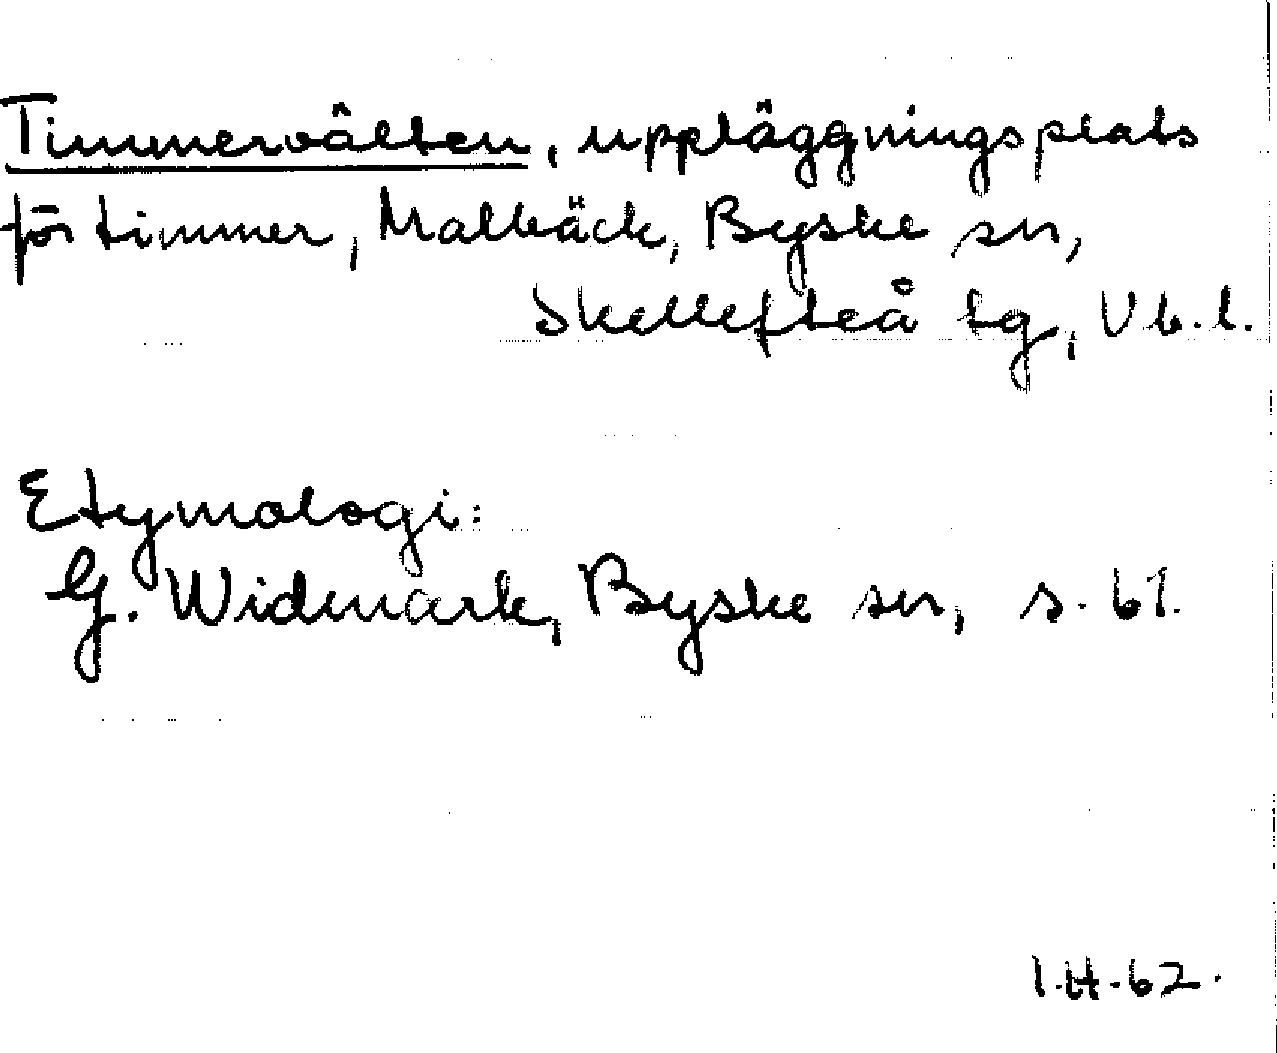 Timmervälten, uppläggningsplats
för timmer, Malbäck, Byske sn,
Skellefteå tg, Vb.l.
Etymologi:
G. Widmark, Byske sn, s. 61.
I.H.62.